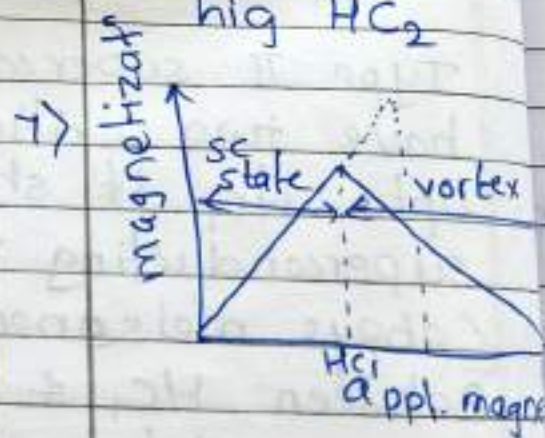 hig HC₂
7>
magnetizat
sc
state
vortex
HC₁
appl. magne